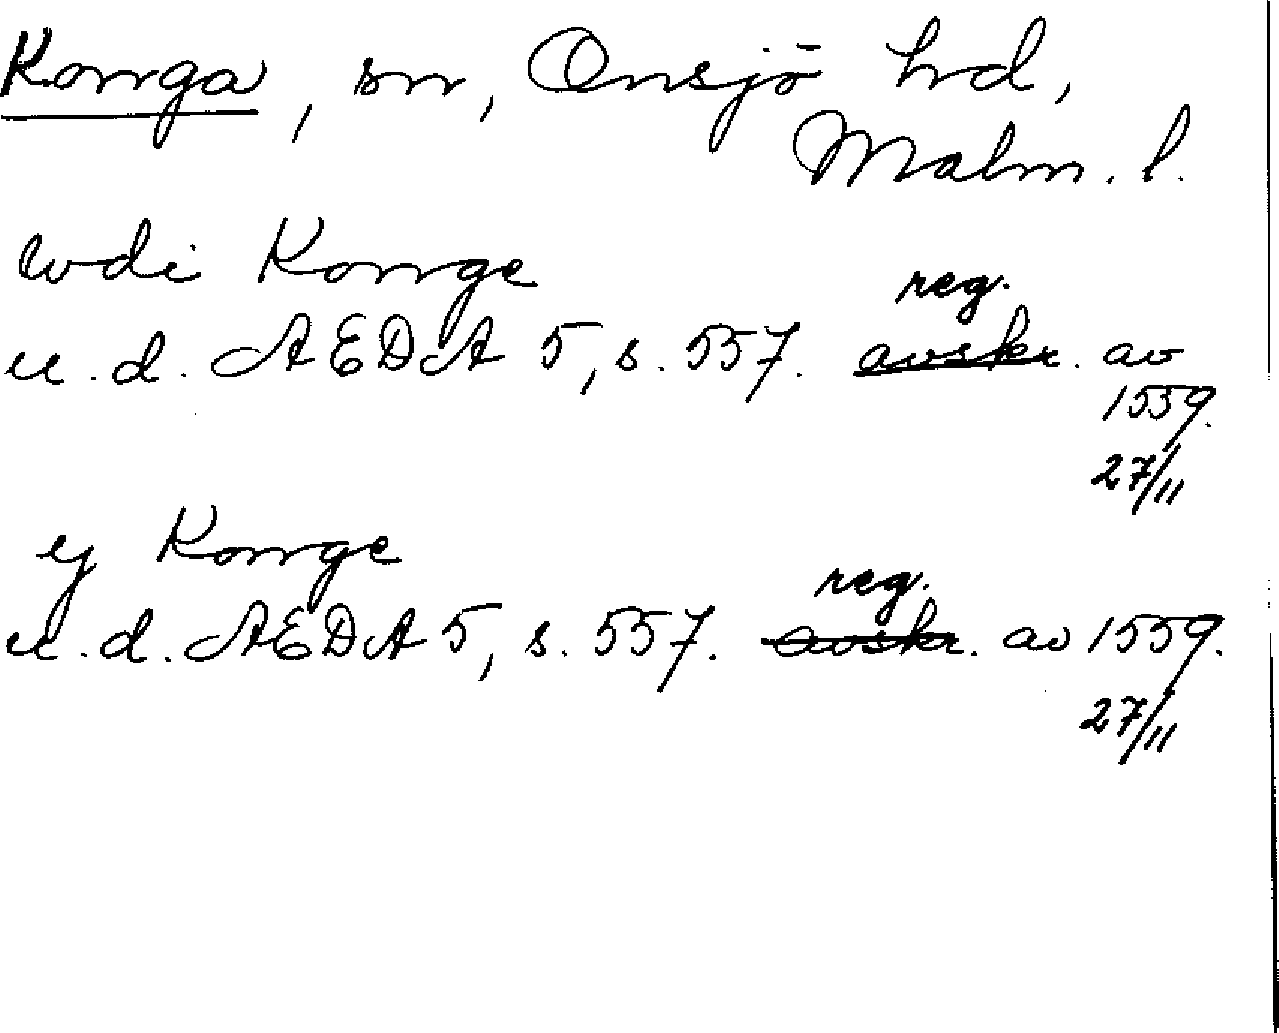 Konga, sn, Onsjö hd,
Malm. l.
wdi Konge
reg.
u.d. AEDA 5, s. 557. avskr. av
1559.
27/11
y Konge
reg.
u.d. AEDA 5, s. 557. avskr. av 1559.
27/11